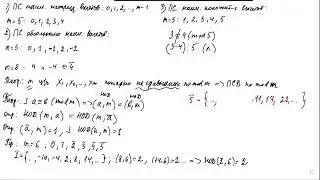 1) ПС наим. неотриц. вычетов: 0, 1, 2, .., m-1
m=5: 0, 1, 2, 3, 4
2) ПС абсолютно наим. вычетов:
m=5: 0, 1, -1, 2, -2
m=8: 4 и -4 ∈ 4̄
3) ПС наим. положит. вычетов:
m=5: 1, 2, 3, 4, 5
3 ≢ 4 (mod 5)
(3-4) ⋮ 5 (л)
Теор.: m чисел x₁, x₂, .., xₘ попарно не сравнимых по mod m → ПСВ по mod m
Теор.: a ≡ b (mod m) => (a, m) = (b, m)
Опр: НОД (m, ā) = НОД (m, a)
Опр: (ā, m) = 1, НОД (a, m) = 1
Пр: m=6: 0, 1, 2, 3, 4, 5
2̄ = {.., -10, -4, 2, 8, 14, ..}; (8,6)=2, (14,6)=2 ... => НОД(2̄, 6) = 2
5̄ = {.., 11, 17, 23, ..}